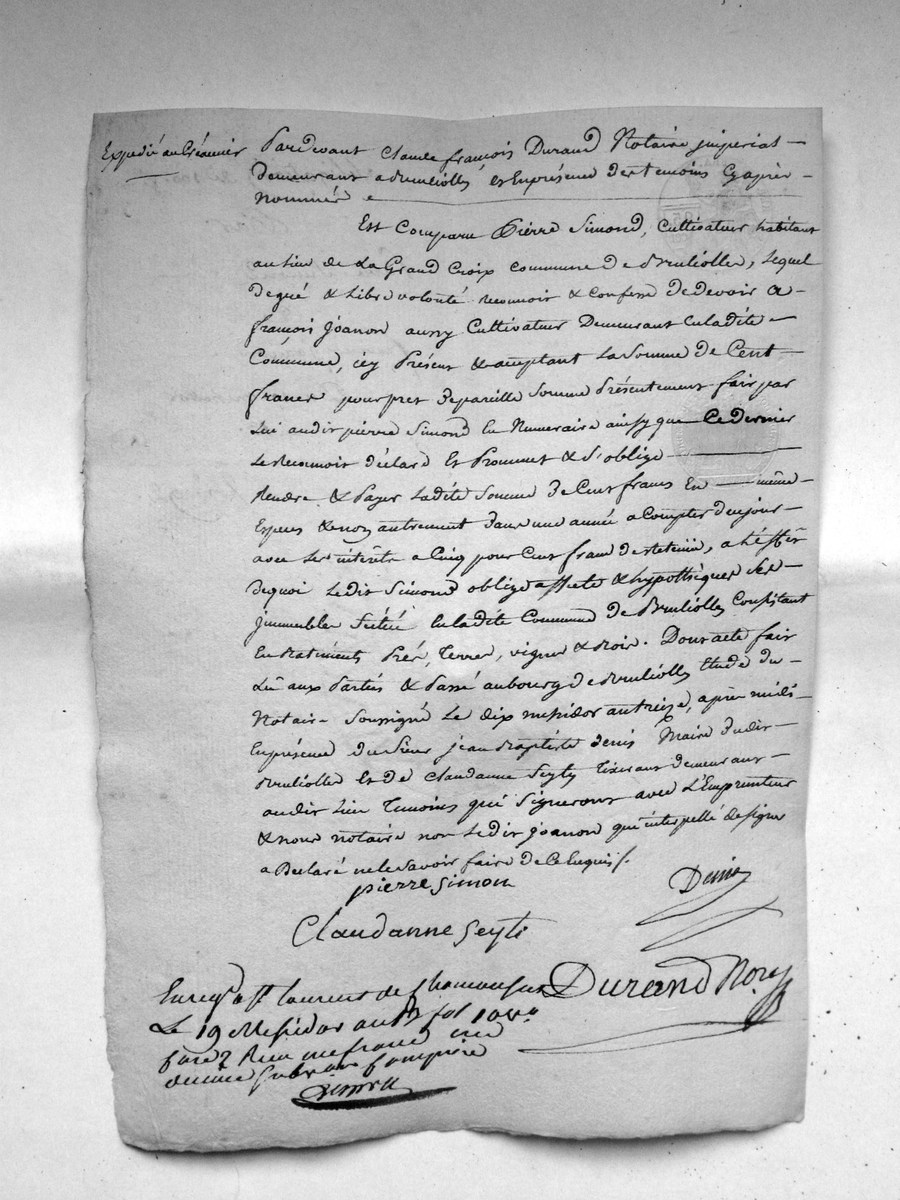 Expedié au Créancier
Pardevant Claude françois Durand Notaire jmperial
demeurant a Brulliolles et En présence des temoins Cy après
Nommés
Est Comparu Pierre Simond, Cultivateur habitant
au lieu de La Grand Croix Commune de Brulliolles, Lequel
de gré & Libre volonté reconnoit & Confesse de devoir a
françois Joanon aussy Cultivateur Demeurant en ladite
Commune, icy Présent & acceptant La Somme de Cent
francs pour pret de pareille Somme Présentement fait par
lui audit pierre Simond En Numeraire ainsy que Ce dernier
Le Reconnoit déclare Et Prommet & S'oblige
Rendre & Payer Ladite Somme de Cent francs En même
Especes & non autrement dans une année a Compter de ce jour
avec Les intérêts a Cinq pour Cent franc de retenüe, a l'effet
de quoi Ledit Simond oblige affecte & hypothèque Ses
jmmeubles Scitué En ladite Commune de Brulliolles Consistant
En Batiments Prés, Terres, vignes & Bois. Dont acte fait
Lû aux Parties & Passé au bourg de Brulliolles Etude du
Notaire Soussigné Le dix messidor an treize, après midi
En présence du Sieur jean Baptiste Denis Maire dudit
Brulliolles Et de Claudanne Seyty Tixerant demeurant
audit Lieu Temoins qui Signeront avec L'Emprunteur
& nous notaire non Ledit Joanon qui interpellé de signer
a Déclaré ne le Savoir faire de Ce Enquis /.
pierre Simon
Denis
Claudanne Seyti
Durand Nore
Enregé a St laurent de Chamousset
Le 19 Messidor an 13 fol
un franc